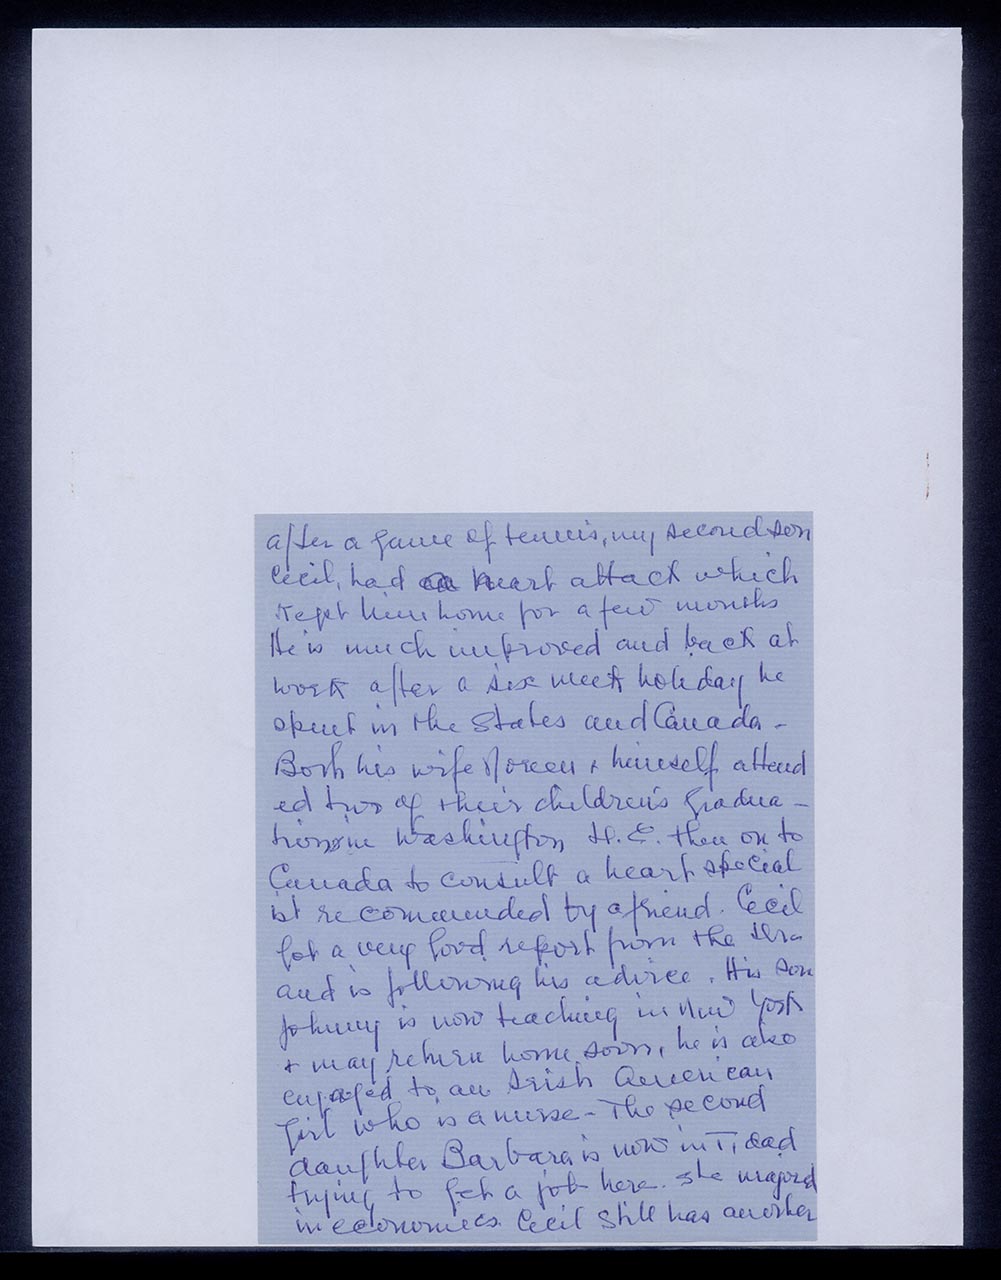 after a game of tennis, my second son
Cecil, had a heart attack which
kept him home for a few months
He is much improved and back at
work after a six week holiday he
spent in the States and Canada -
Both his wife & himself attend
ed two of their children's gradua -
tions in Washington D.C. then on to
Canada to consult a heart special
ist recommended by a friend. Cecil
got a very good report from the
and is following his advice. His son
Johnny is now teaching in New York
& may return home soon, he is also
engaged to an Irish American
girl who is a nurse - The second
daughter Barbara is now in T,dad
trying to get a job here. She majord
in economics. Cecil still has another